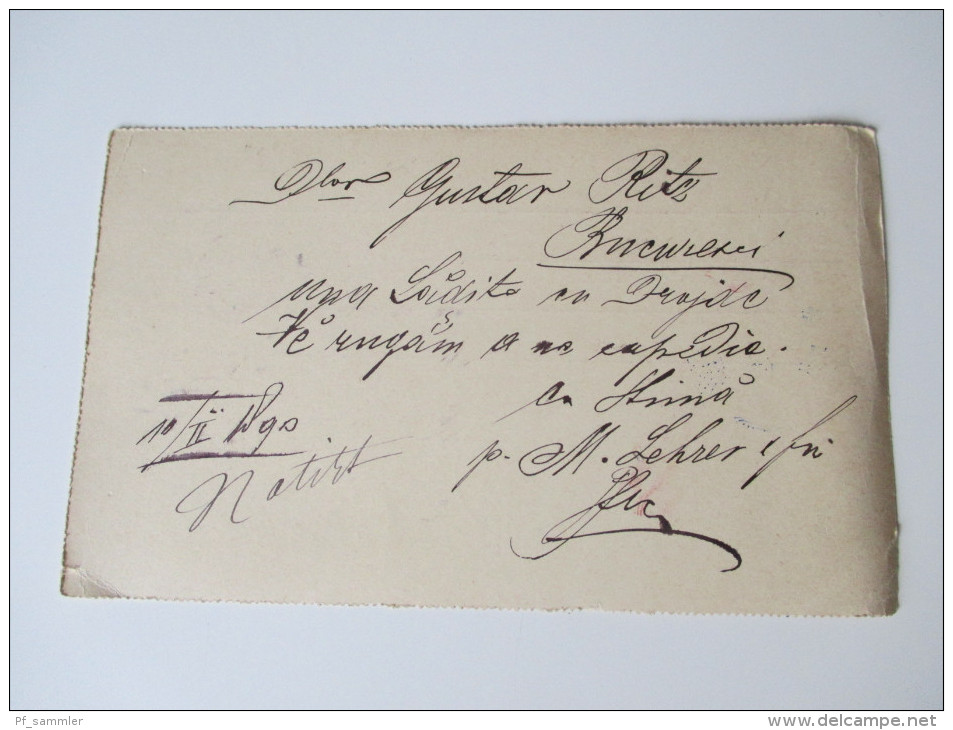 Dlor Gustav Ritz
Bucuresci
una Lădiță cu Drojdie
Vĕ rugăm a ne expedia.
cu Stimă
10/II
p. M. Lehrer & fii
Notirt
Pf_sammler
http://www.delcampe.net